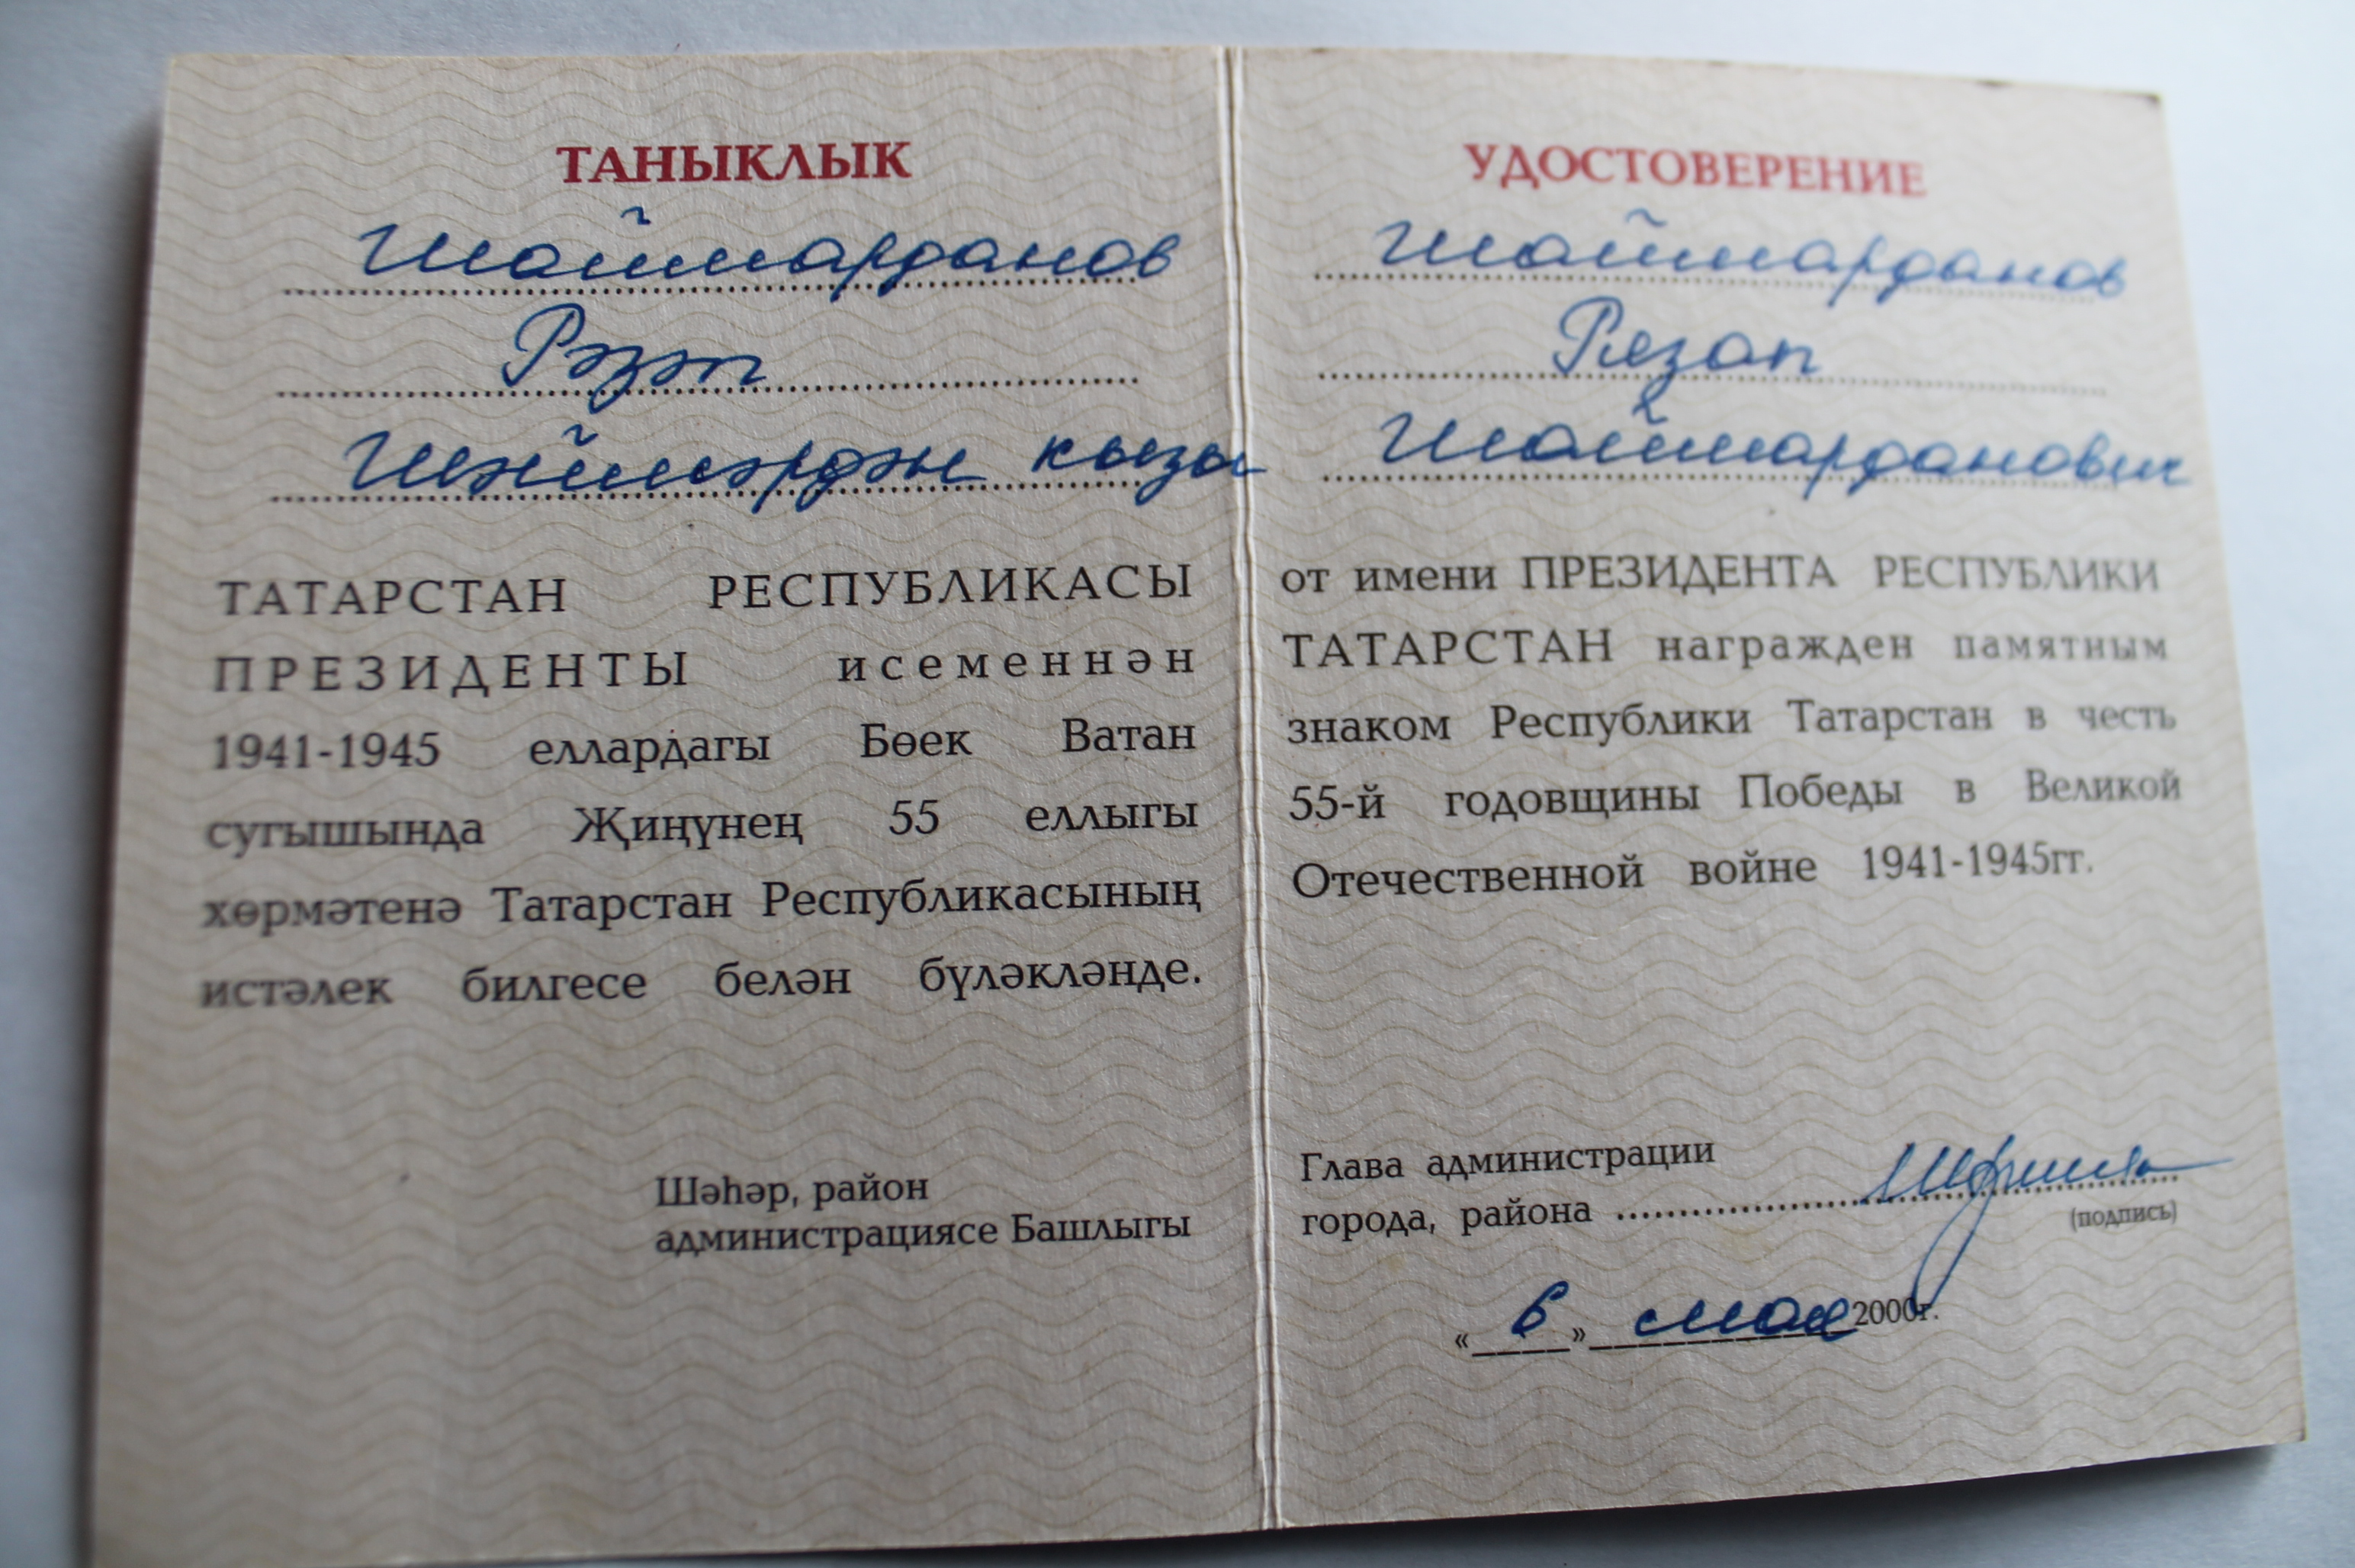 ТАНЫКЛЫК
Шаймарданов
Рәзәп
Шәймәрдән кызы
ТАТАРСТАН РЕСПУБЛИКАСЫ
ПРЕЗИДЕНТЫ исеменнән
1941-1945 еллардагы Бөек Ватан
сугышында Җиңүнең 55 еллыгы
хөрмәтенә Татарстан Республикасының
истәлек билгесе белән бүләкләнде.
Шәһәр, район
администрациясе Башлыгы
УДОСТОВЕРЕНИЕ
Шаймарданов
Рязап
Шаймарданович
от имени ПРЕЗИДЕНТА РЕСПУБЛИКИ
ТАТАРСТАН награжден памятным
знаком Республики Татарстан в честь
55-й годовщины Победы в Великой
Отечественной войне 1941-1945гг.
Глава администрации
города, района
(подпись)
«6» мая 2000г.